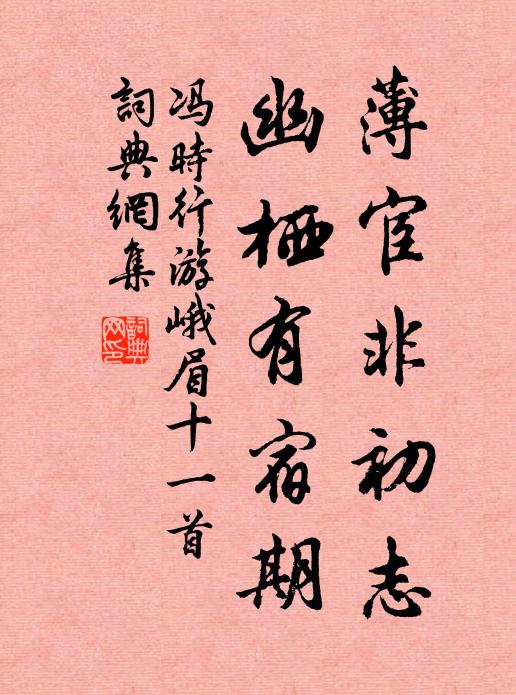 薄宦非初志
幽栖有宿期
冯時行游峨眉十一首
詞典網集
詞典网印